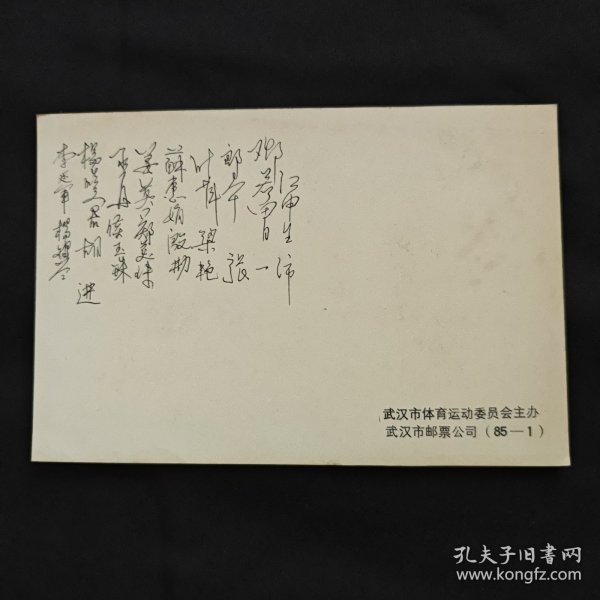 江申生 沛
邓若曾 一
郎平 张
叶 梁艳
蘇惠娟 殷勤
姜英 郑美珠
巫丹 侯玉珠
楊晓君 胡进
李延军 楊锡兰
武汉市体育运动委员会主办
武汉市邮票公司(85—1)
孔夫子旧书网
www.kongfz.com